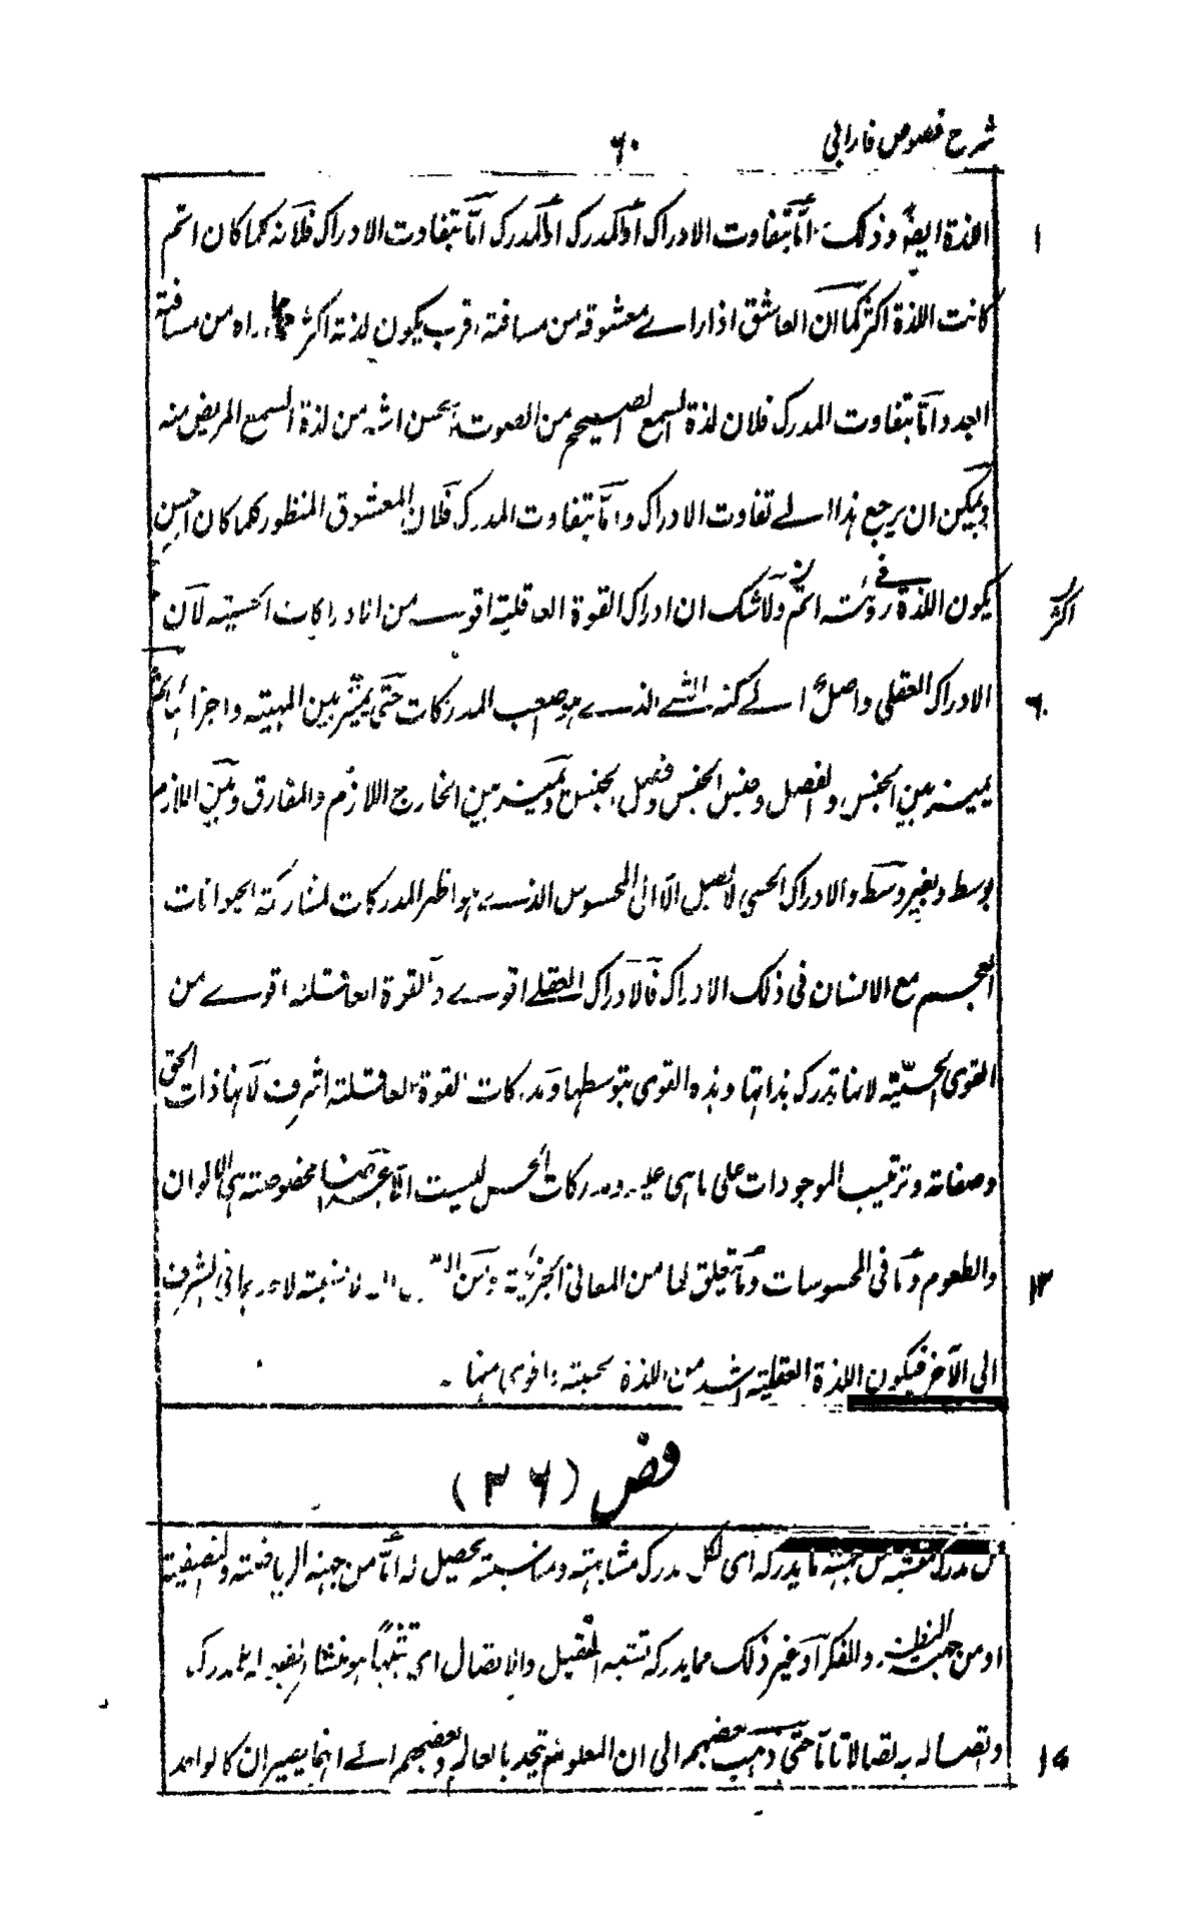 شرح فصوص فارابی
۶۰
اللذة ایضا وذلک اما بتفاوت الادراک او المدرک او المدرک اما بتفاوت الادراک فلانه کلما کان اتم
۱
کانت اللذة اکثر کما ان العاشق اذا رای معشوقه من مسافته اقرب یکون لذته اکثر مما راه من مسافته
ابعد واما بتفاوت المدرک فلان لذة السمع الصحیح من الصوت الحسن اشد من لذة السمع المریض منه
ویمکن ان یرجع هذا الی تفاوت الادراک واما بتفاوت المدرک فلان المعشوق المنظور کلما کان احسن
یکون اللذة فی رؤیته اتم ولاشک ان ادراک القوة العاقلیة اقوی من الادراکات الحسیته لان
اکثر
الادراک العقلی واصل الی کنه الشی الذی هو اصعب المدرکات حتی یمیز بین المهیته واجزائها ثم
۶
یمیز بین الجنس والفصل وجنس الجنس وفصل الجنس ویمیز بین الخارج اللازم والمفارق وبین اللازم
بوسط وبغیر وسط والادراک الحسی لا یصل الا الی المحسوس الذی هو اظهر المدرکات لمشارکة الحیوانات
العجم مع الانسان فی ذلک الادراک فالادراک العقلی اقوی والقوة العاقلة اقوی من
القوی الحسیته لانها تدرک بذاتها وهذه القوی بتوسطها ومدرکات القوة العاقلته اشرف لانها ذات الحق
وصفاته وترتیب الموجودات علی ما هی علیه ومدرکات الحس لیست الا اعراضا مخصوصته هی الالوان
والطعوم وما فی المحسوسات وما یتعلق لها من المعانی الجزئیة وبین ان لا نسبته لاحدهما فی الشرف
۱۲
الی الآخر فیکون اللذة العقلیته اشد من اللذة الحسیته واقوی منها -
فص (۳۶)
کل مدرک متشبه من جهته ما یدرکه ای لکل مدرک مشابهته ومناسبته یحصل له اما من جهته الریاضته والتصفیته
او من جهته النظر والفکر او غیر ذلک مما یدرکه تشبه التقبل والاتصال ای تشبها هو منشا لقبوله المدرک
واتصاله به اتصالا تاما حتی ذهب بعضهم الی ان المعلوم یتحد بالعالم وبعضهم الی انهما یصیران کالواحد
۱۵